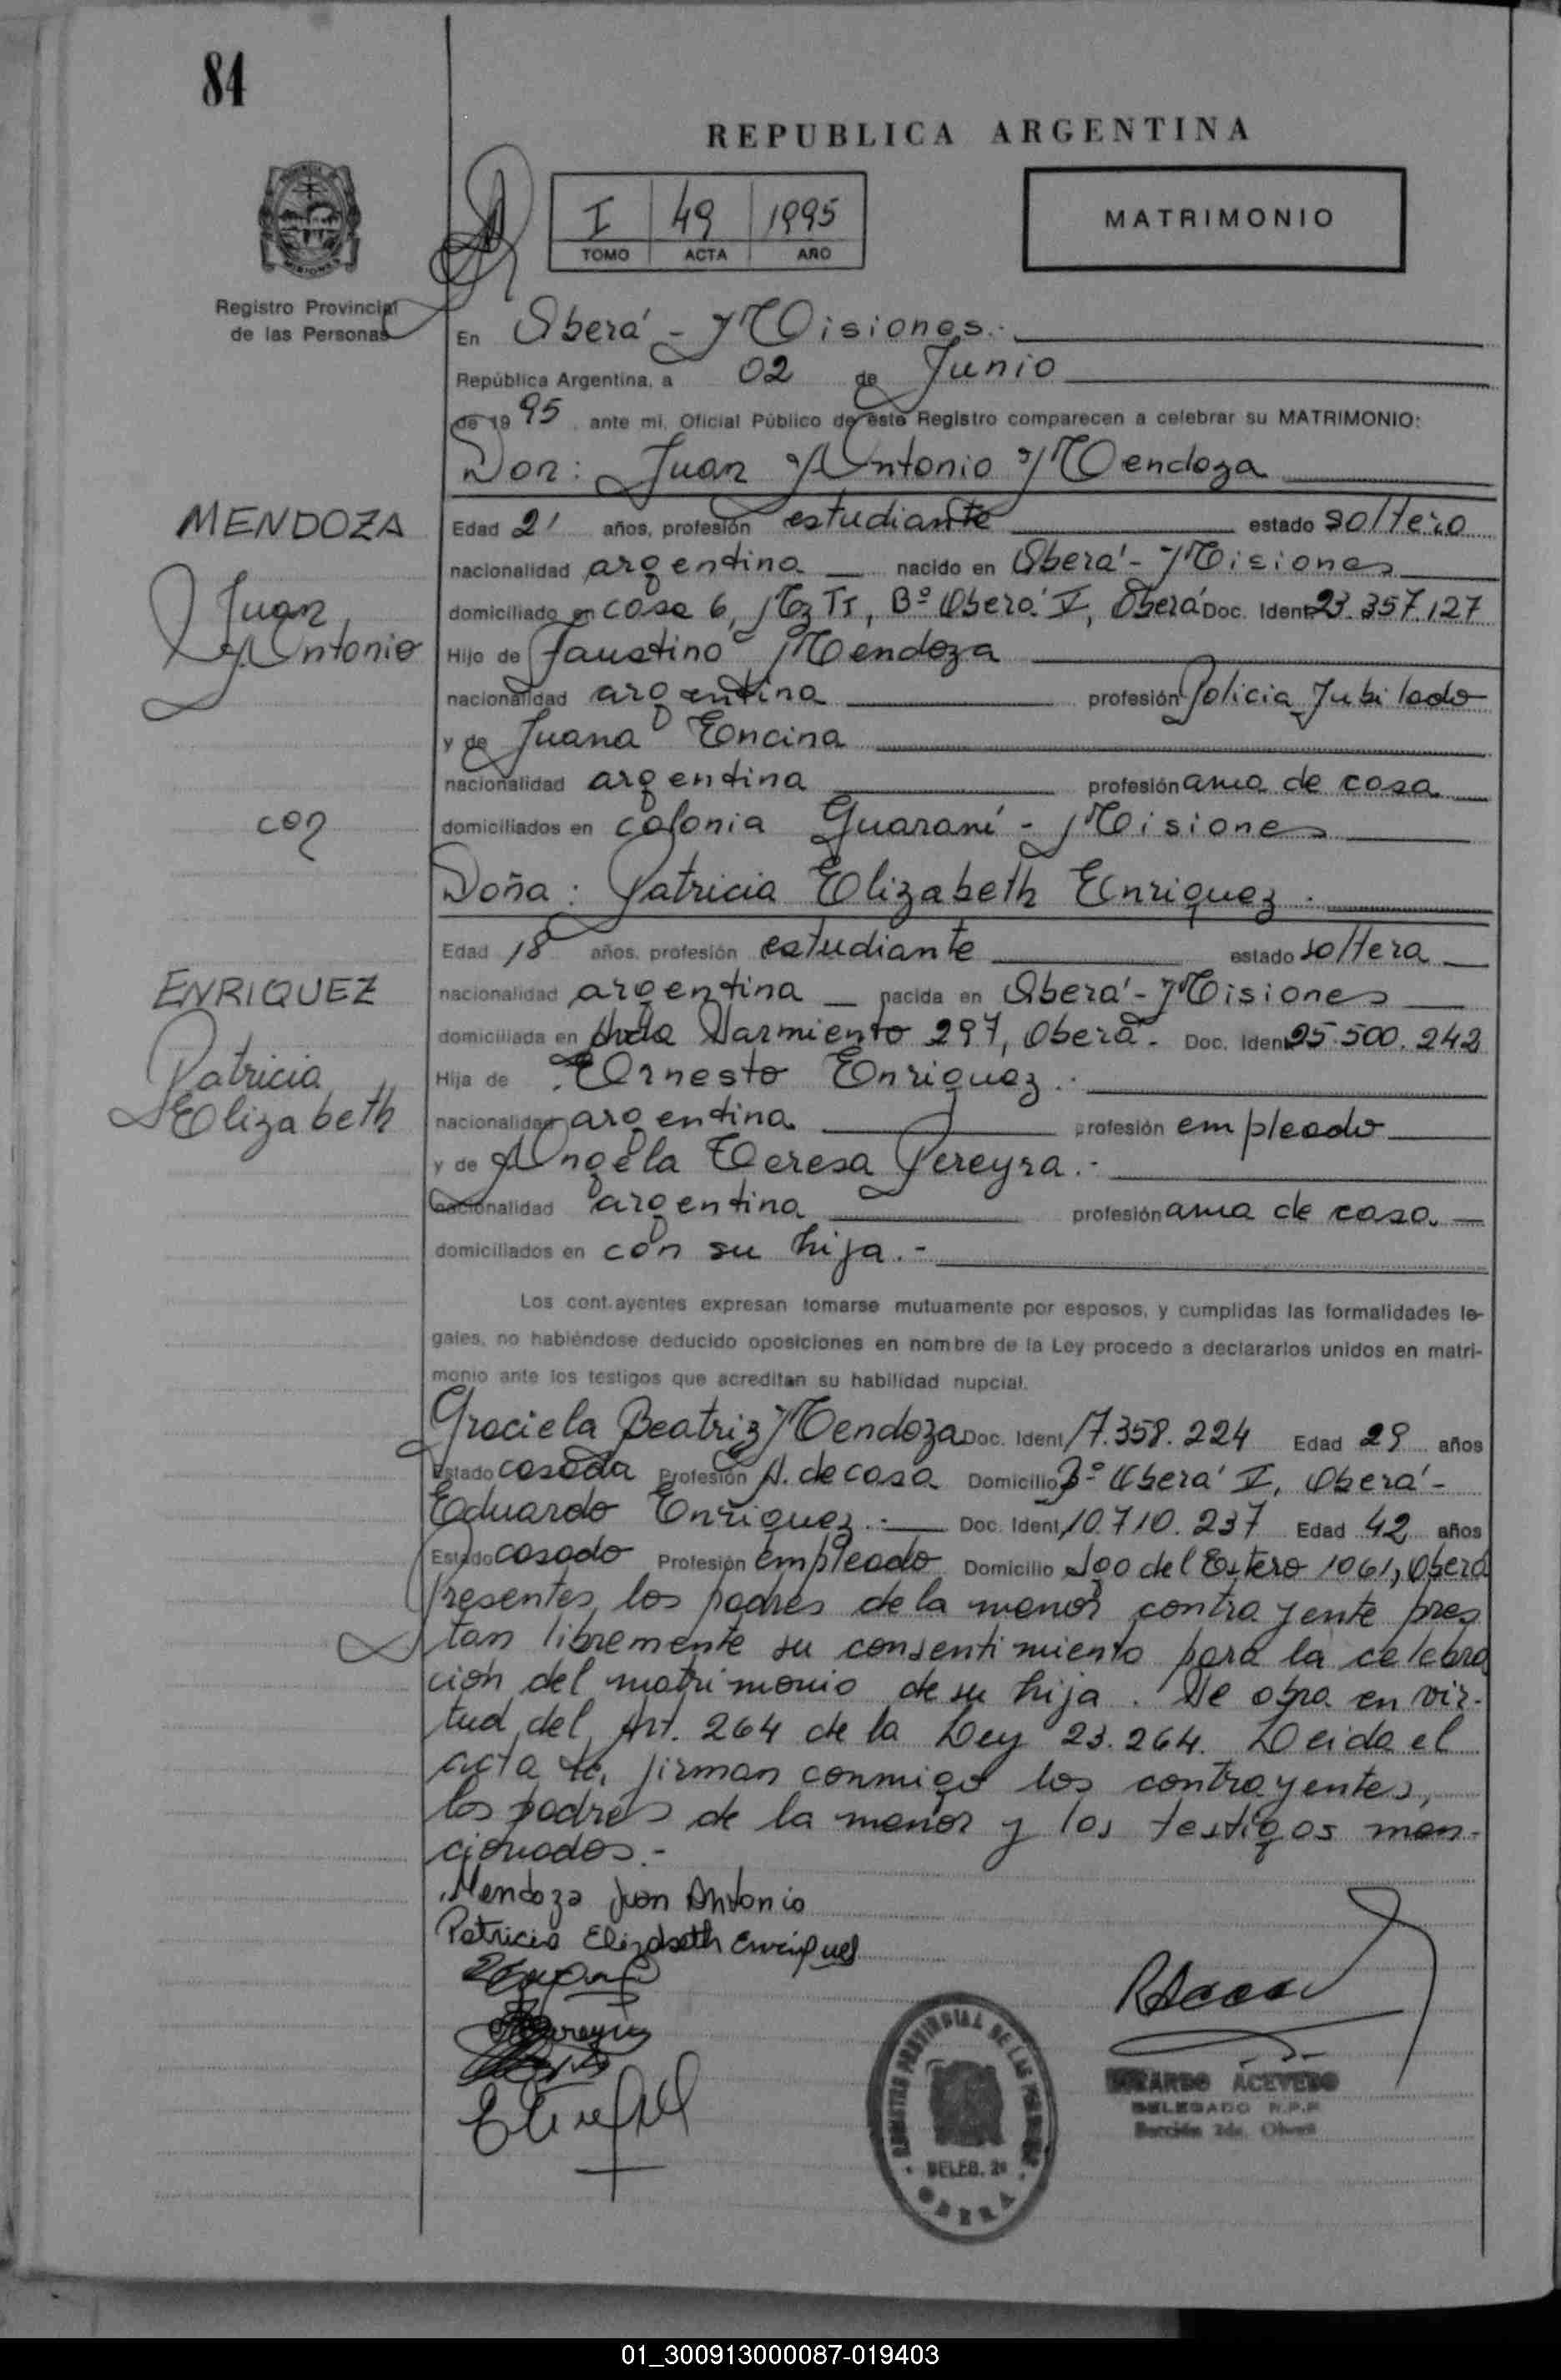 84
REPUBLICA ARGENTINA
I 49 1995
TOMO ACTA AÑO
MATRIMONIO
MISIONES
Registro Provincial
de las Personas
En Oberá - Misiones.-
República Argentina, a 02 de Junio
de 19 95, ante mi, Oficial Público de este Registro comparecen a celebrar su MATRIMONIO:
Don: Juan Antonio Mendoza
MENDOZA
Juan
Antonio
Edad 21 años, profesión estudiante estado soltero
nacionalidad argentina nacido en Oberá - Misiones
domiciliado en casa 6, Mz Bº Oberá V, Oberá Doc. Ident. 23.357.127
Hijo de Faustino Mendoza
nacionalidad argentina profesión Policia Jubilado
y de Juana Encina
nacionalidad argentina profesión ama de casa
con
domiciliados en colonia Guaraní - Misiones
Doña: Patricia Elizabeth Enriquez.
ENRIQUEZ
Patricia
Elizabeth
Edad 18 años, profesión estudiante estado soltera
nacionalidad argentina nacida en Oberá - Misiones
domiciliada en Avda Sarmiento 297, Oberá - Doc. Ident. 25.500.242
Hija de Ernesto Enriquez.-
nacionalidad argentina profesión empleado
y de Angela Teresa Pereyra.-
nacionalidad argentina profesión ama de casa
domiciliados en con su hija.-
Los cont.ayentes expresan tomarse mutuamente por esposos, y cumplidas las formalidades le-
gales, no habiéndose deducido oposiciones en nombre de la Ley procedo a declararlos unidos en matri-
monio ante los testigos que acreditan su habilidad nupcial.
Graciela Beatriz Mendoza Doc. Ident. 17.358.224 Edad 29 años
Estado casada Profesión A. de casa Domicilio Bº Oberá V, Oberá -
Eduardo Enriquez.- Doc. Ident. 10.710.237 Edad 42 años
Estado casado Profesión empleado Domicilio Sgo del Estero 1061, Oberá
Presentes los padres de la menor contrayente pres
tan libremente su consentimiento para la celebra
ción del matrimonio de su hija. Se obra en vir-
tud del Art. 264 de la Ley 23.264. Leida el
acta la, firman conmigo los contrayentes,
los padres de la menor y los testigos men-
cionados.-
Mendoza Juan Antonio
Patricia Elizabeth Enriquez
REGISTRO PROVINCIAL DE LAS PERSONAS
DELEG. 2ª
OBERA
RICARDO ACEVEDO
DELEGADO R.P.P.
Sección 2da. Oberá
01_300913000087-019403